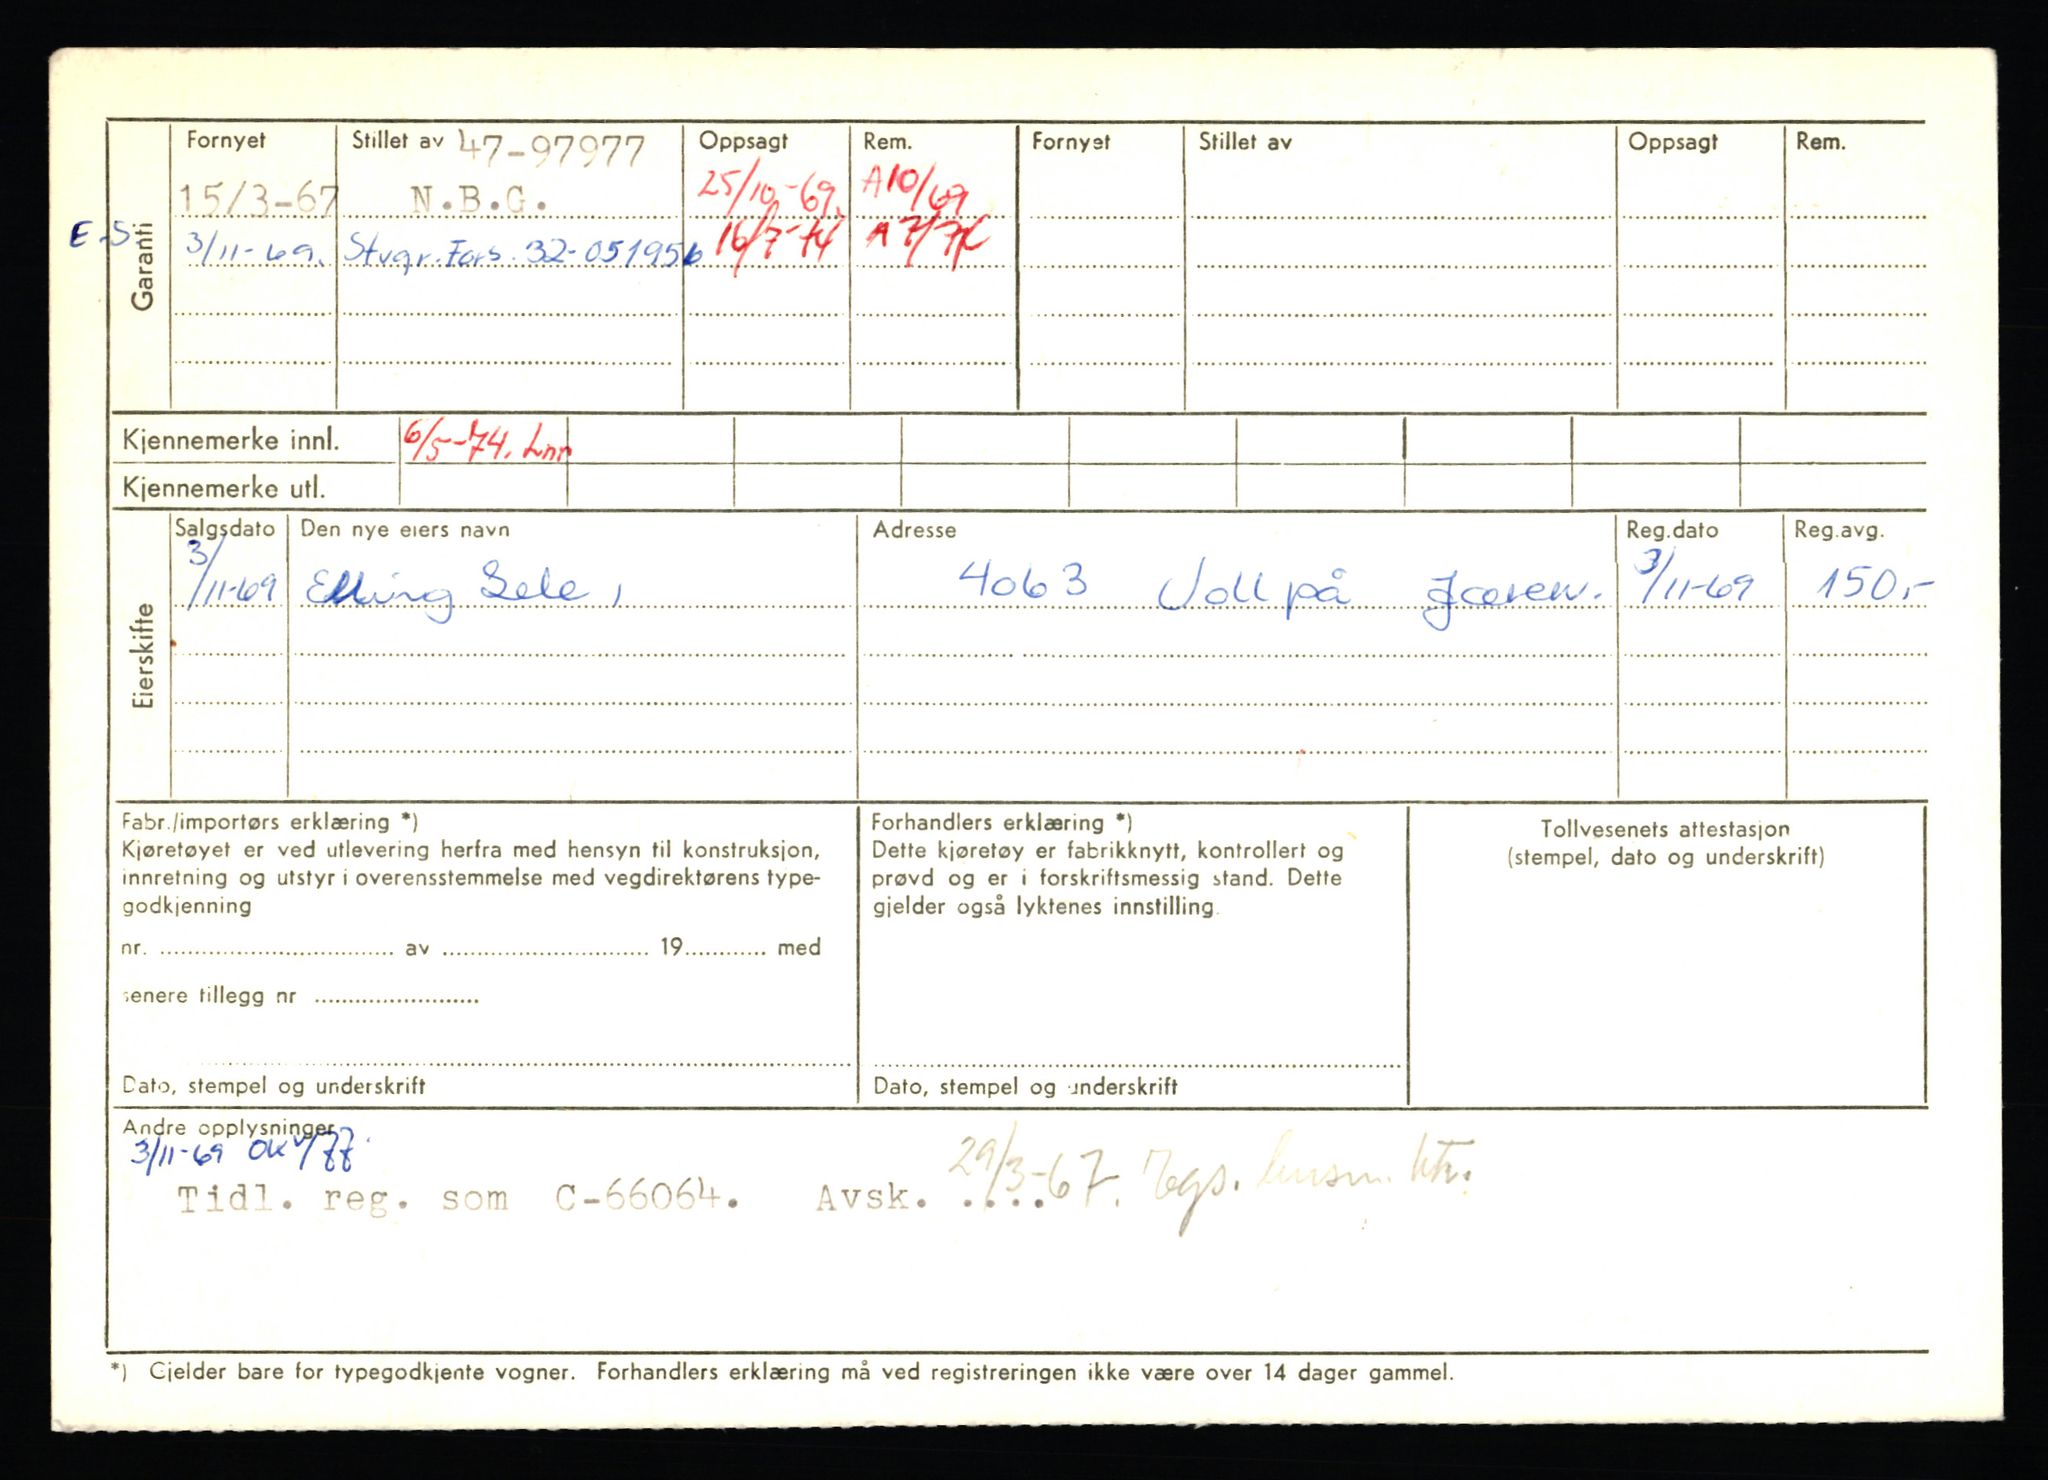 Garanti
Fornyet Stillet av 47-97977 Oppsagt Rem. Fornyet Stillet av Oppsagt Rem.
15/3-67 N.B.G. 25/10-69. A10/69
E.S. 3/11-69. Stvgr.Fors. 32-051956 16/7-74 A7/74
Kjennemerke innl. 6/5-74.
Kjennemerke utl.
Eierskifte
Salgsdato Den nye eiers navn Adresse Reg.dato Reg.avg.
3/11-69 Elling Sele, 4063 Voll på Jæren. 3/11-69 150,-
Fabr./importørs erklæring *)
Kjøretøyet er ved utlevering herfra med hensyn til konstruksjon,
innretning og utstyr i overensstemmelse med vegdirektørens type-
godkjenning
nr. .......... av .......... 19.......... med
senere tillegg nr ..........
Dato, stempel og underskrift
Forhandlers erklæring *)
Dette kjøretøy er fabrikknytt, kontrollert og
prøvd og er i forskriftsmessig stand. Dette
gjelder også lyktenes innstilling.
Dato, stempel og underskrift
Tollvesenets attestasjon
(stempel, dato og underskrift)
Andre opplysninger
3/11-69 OK
Tidl. reg. som C-66064. Avsk. .... 29/3-67.
*) Gjelder bare for typegodkjente vogner. Forhandlers erklæring må ved registreringen ikke være over 14 dager gammel.